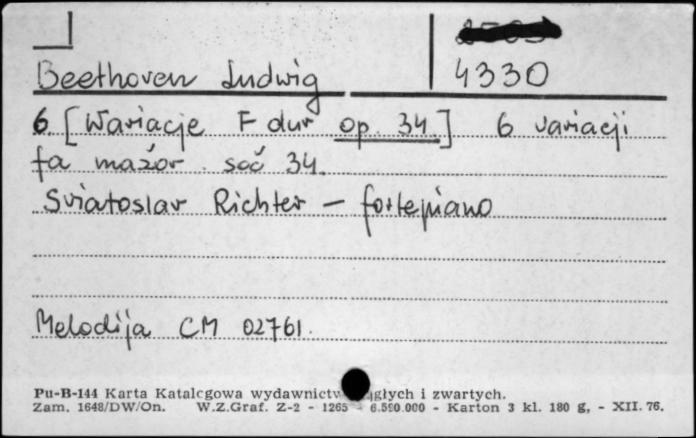 Beethoven Ludwig
4330
6. [Wariacje F dur op. 34.] 6 variacji
fa mažor. soč 34.
Sviatoslav Richter — fortepiano
Melodija CM 02761.
Pu-B-144 Karta Katalogowa wydawnictw i zwartych.
Zam. 1648/DW/On. W.Z.Graf. Z-2 - 1265 - 6.590.000 - Karton 3 kl. 180 g, - XII. 76.